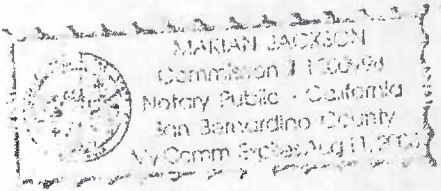 MARIAN JACKSON
Commission #
Notary Public - California
San Bernardino County
My Comm. Expires Aug 11,